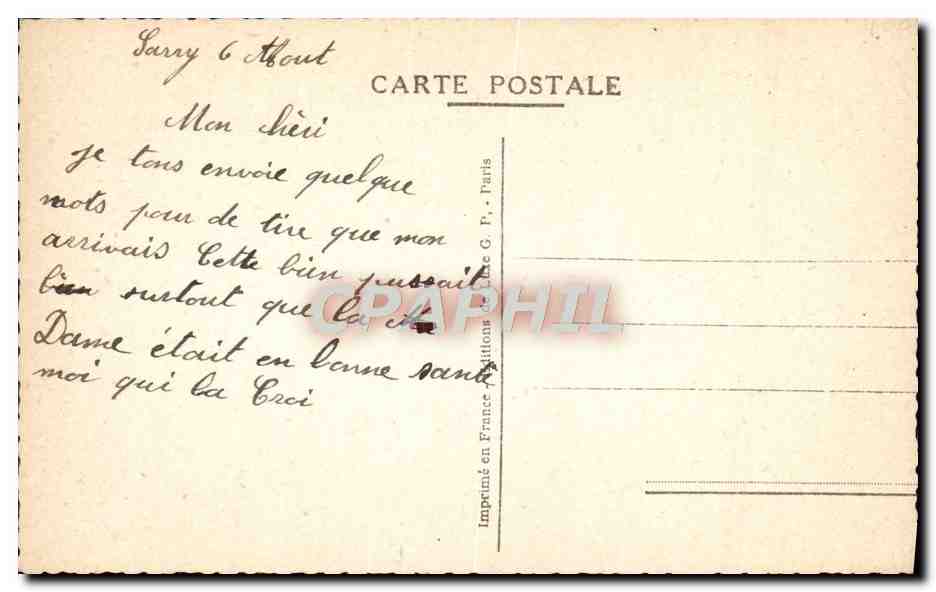 Sarry 6 Aout
CARTE POSTALE
Mon chèri
je tons envoie quelque
mots pour de tire que mon
arrivais Cette bien passait
bien surtout que la
Dame était en bonne santé
moi qui la Croi
Imprimé en France - Editions de Luxe G. P. - Paris
CPAPHIL